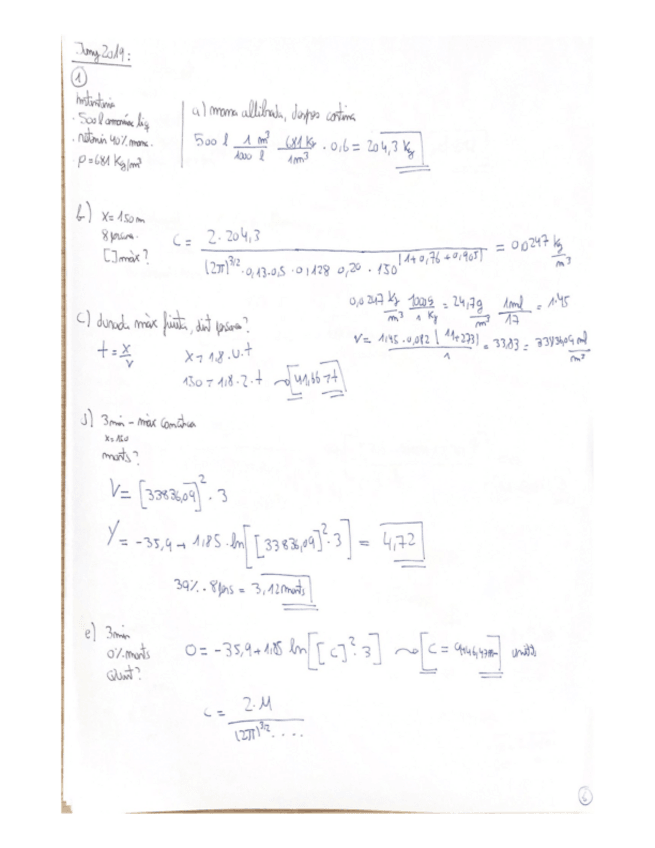 Juny 2019:
1
Instantània
· 500 l amoníac líq
· retenir 40% mass.
ρ = 681 Kg/m³
a) massa alliberada, després
500 l · 1 m³/1000 l · 681 Kg/1m³ · 0,6 = 204,3 Kg
b) x = 150m
8 persones
[ ] màx?
C = 2·204,3 / (2π)^3/2 · 0,13·0,5 · 0,128 · 0,20 · 150^(1+0,76+0,905) = 0,0247 kg/m³
0,0247 Kg/m³ · 1000g/1 Kg = 24,7 g/m³ · 1mol/17 = 1.45
V = 1,45·0,082 (11+273)/1 = 33,83 = 33836,09 ml/m³
c) durada màx, dist persones?
t = x/v
x = 1,8·u·t
150 = 1,8·2·t → 41,66 = t
d) 3min - màx
x = 150
morts?
V = [33836,09]² · 3
Y = -35,9 + 1,85 · ln[[33836,09]² · 3] = 4,72
39% · 8pers = 3,12 morts
e) 3min
0% morts
Quant?
0 = -35,9 + 1,85 ln[[C]² · 3] → [C =
C = 2·M / (2π)^3/2 ....
6